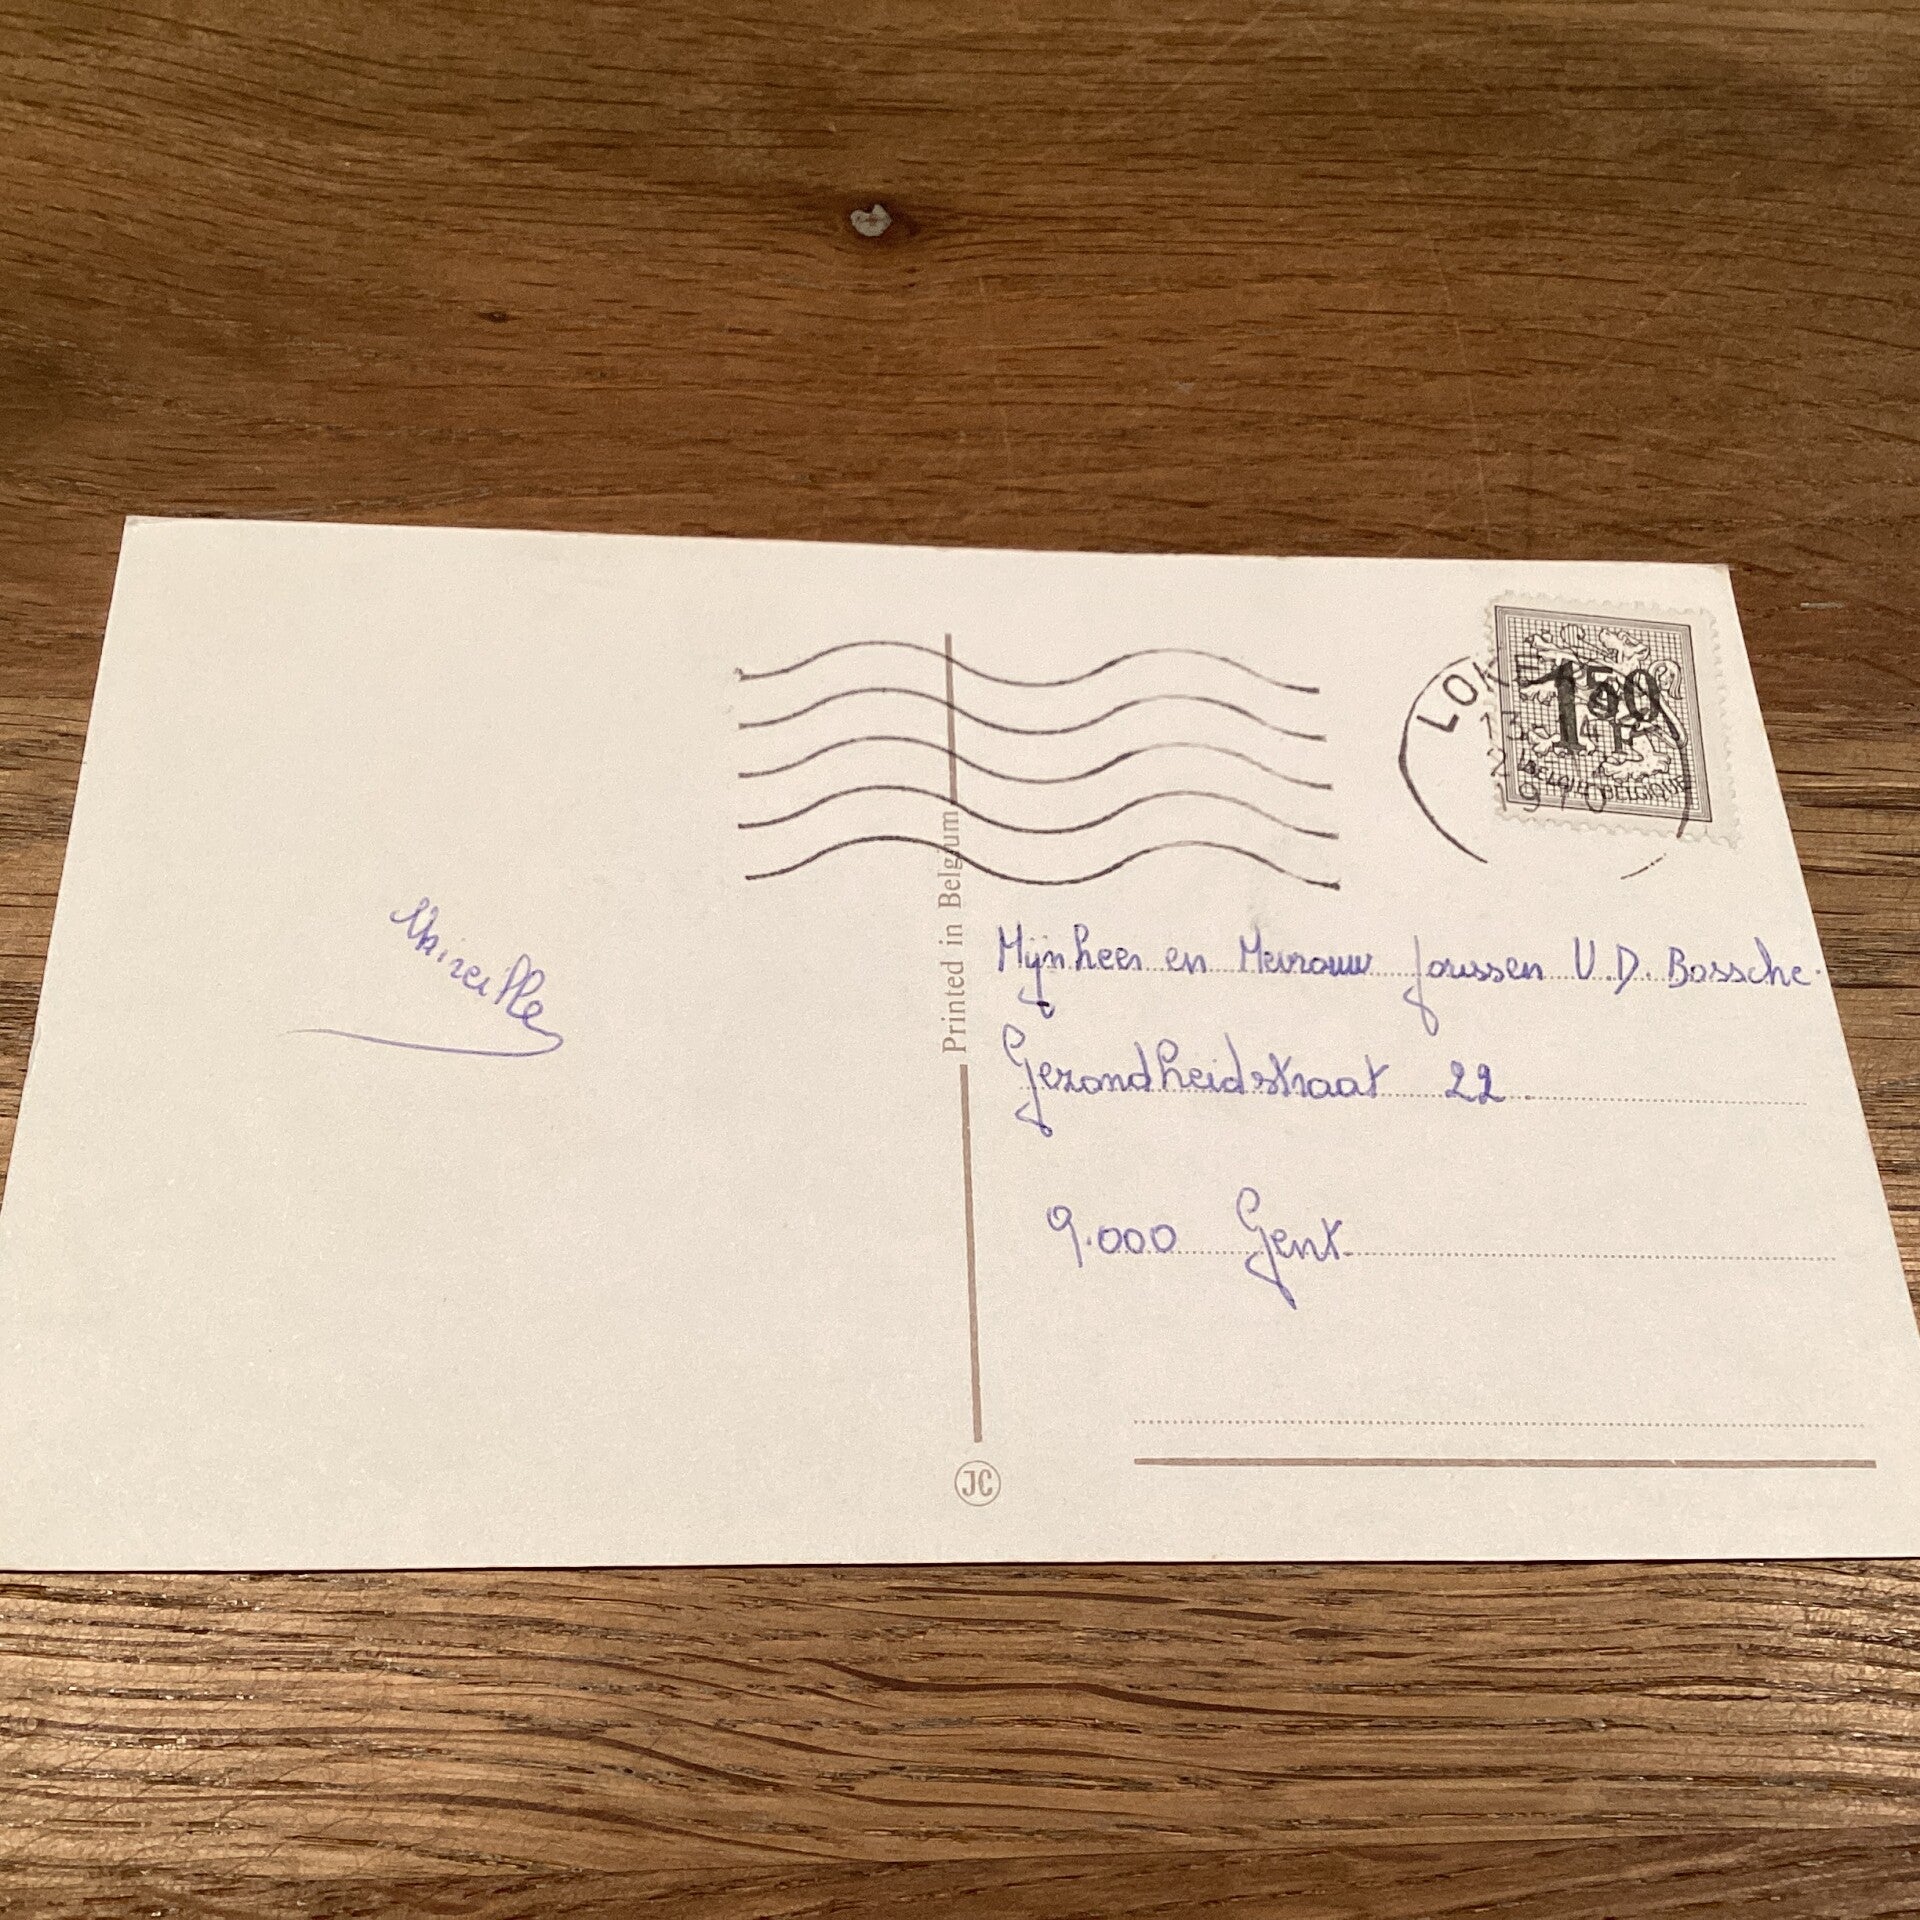 Mireille
Printed in Belgium
JC
LOKE
13
2
1970
1F50
BELGIE BELGIQUE
Mijnheer en Mevrouw Joussen V.D. Bossche.
Gezondheidstraat 22
9.000 Gent.